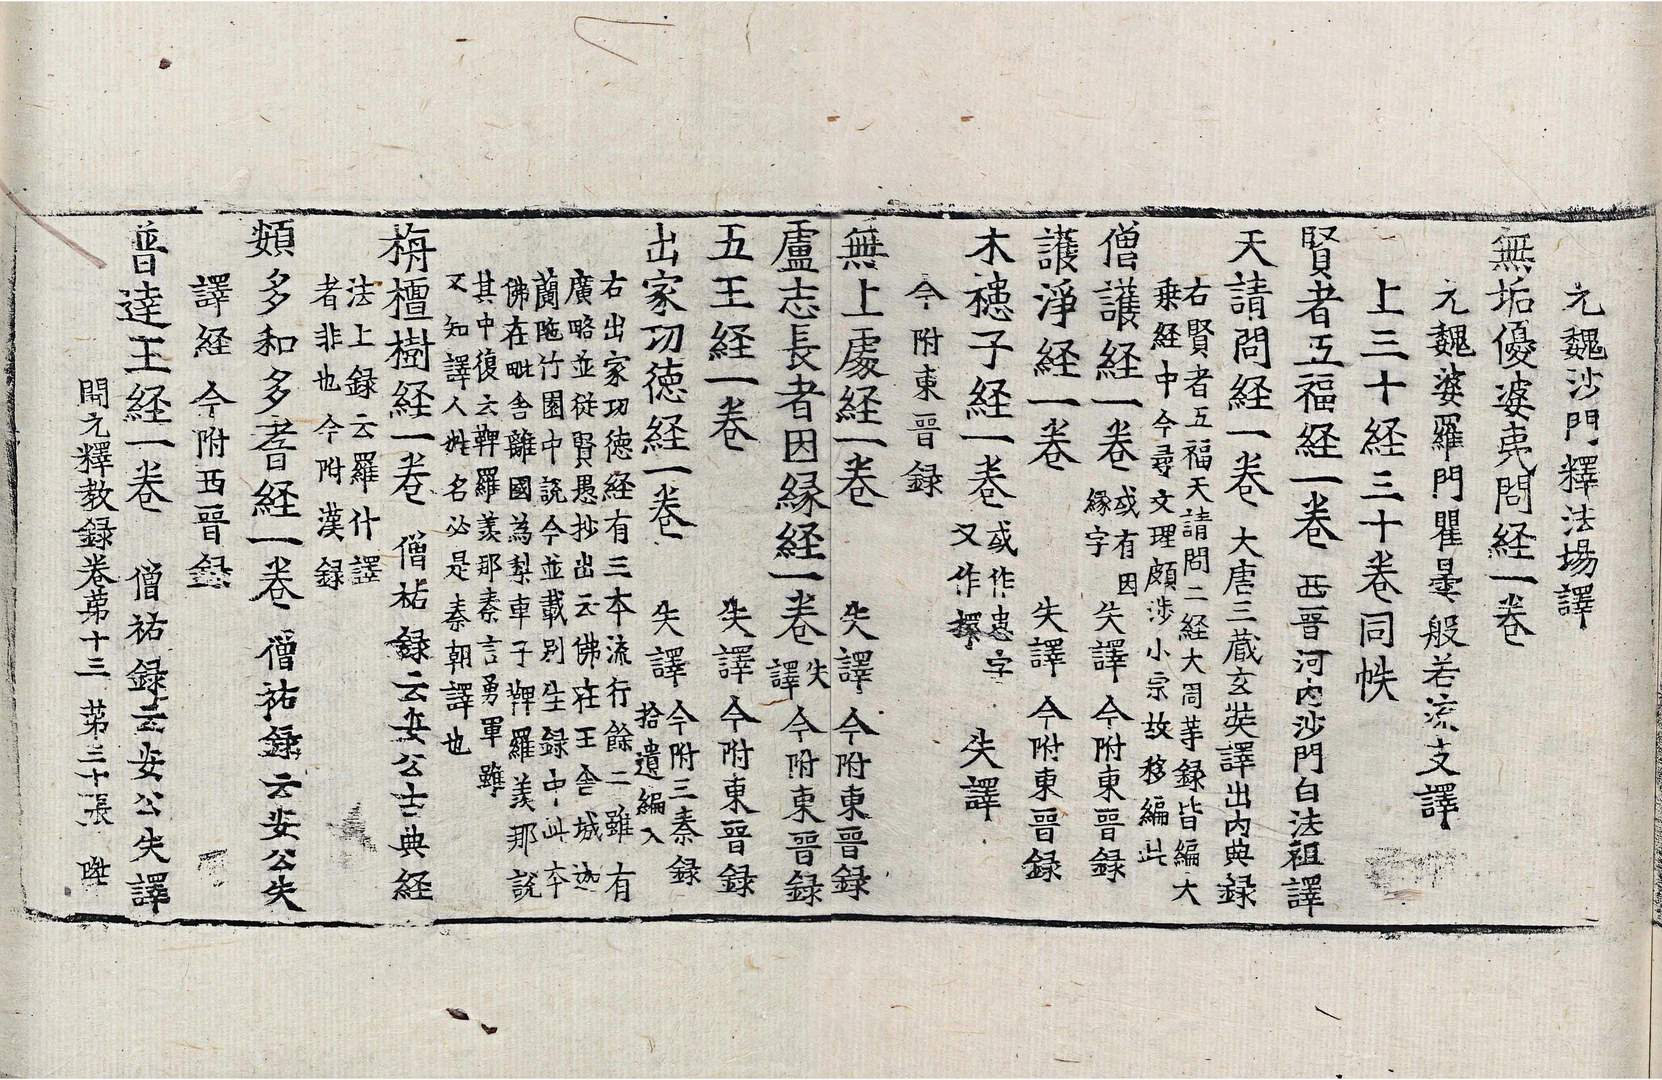 元魏沙門釋法場譯
無垢優婆夷問経一卷
元魏婆羅門瞿曇般若流支譯
上三十経三十卷同帙
賢者五福経一卷 西晉河内沙門白法祖譯
天請問経一卷 大唐三蔵玄奘譯出内典録
右賢者五福天請問二経大周等録皆編大
乗経中今尋文理頗涉小宗故移編此
僧護経一卷 或有因
縁字 失譯今附東晉録
護淨経一卷 失譯今附東晉録
木槵子経一卷 或作患字
又作檡 失譯
今附東晉録
無上處経一卷 失譯今附東晉録
盧志長者因緣経一卷 失
譯今附東晉録
五王経一卷 失譯今附東晉録
出家功徳経一卷 失譯 今附三秦録
拾遺編入
右出家功徳経有三本流行餘二雖有
廣略並從賢愚抄出云佛在王舎城迦
蘭陁竹園中説今並載別生録中此本
佛在毗舎離國為梨車子鞞羅羨那説
其中復云鞞羅羨那秦言勇軍雖
不知譯人姓名必是秦朝譯也
栴檀樹経一卷 僧祐録云安公古典経
法上録云羅什譯
者非也今附漢録
頞多和多耆経一卷 僧祐録云安公失
譯経 今附西晉録
普達王経一卷 僧祐録云安公失譯
開元釋教録卷苐十三 苐三十張